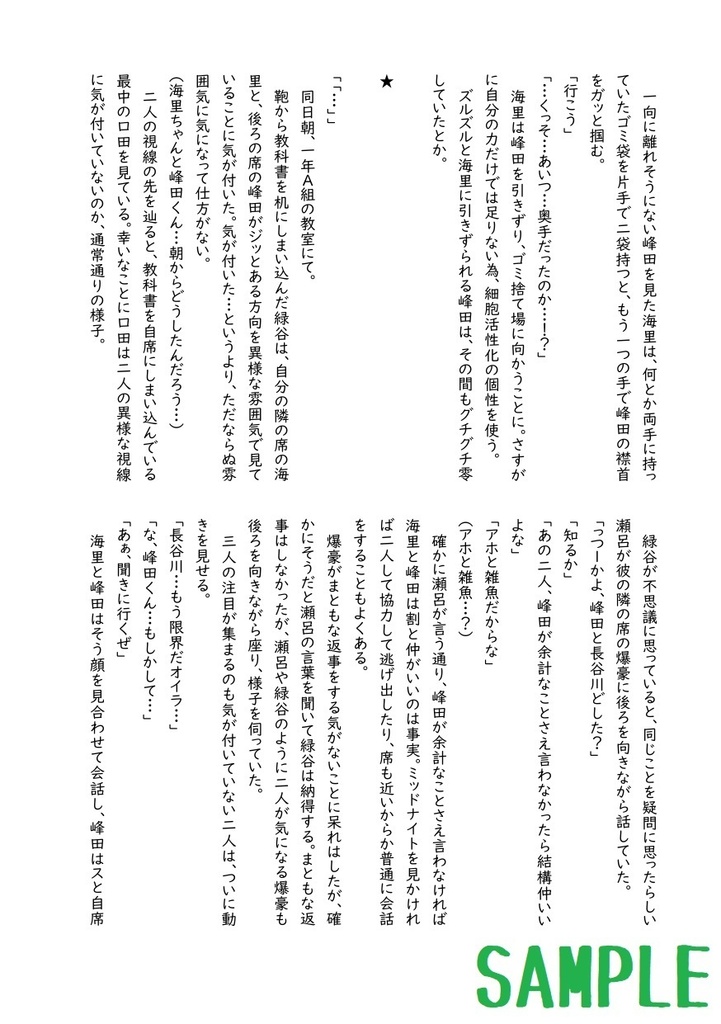 一向に離れそうにない峰田を見た海里は、何とか両手に持っ
ていたゴミ袋を片手で二袋持つと、もう一つの手で峰田の襟首
をガッと掴む。
「行こう」
「…くっそ…あいつ…奥手だったのか…！？」
海里は峰田を引きずり、ゴミ捨て場に向かうことに。さすが
に自分の力だけでは足りない為、細胞活性化の個性を使う。
ズルズルと海里に引きずられる峰田は、その間もグチグチ零
していたとか。
★
「「…」」
同日朝、一年Ａ組の教室にて。
鞄から教科書を机にしまい込んだ緑谷は、自分の隣の席の海
里と、後ろの席の峰田がジッとある方向を異様な雰囲気で見て
いることに気が付いた。気が付いた…というより、ただならぬ雰
囲気に気になって仕方がない。
（海里ちゃんと峰田くん…朝からどうしたんだろう…）
二人の視線の先を辿ると、教科書を自席にしまい込んでいる
最中の口田を見ている。幸いなことに口田は二人の異様な視線
に気が付いていないのか、通常通りの様子。
緑谷が不思議に思っていると、同じことを疑問に思ったらしい
瀬呂が彼の隣の席の爆豪に後ろを向きながら話していた。
「つつーかよ、峰田と長谷川どした？」
「知るか」
「あの二人、峰田が余計なことさえ言わなかったら結構仲いい
よな」
「アホと雑魚だからな」
（アホと雑魚…？）
確かに瀬呂が言う通り、峰田が余計なことさえ言わなければ
海里と峰田は割と仲がいいのは事実。ミッドナイトを見かけれ
ば二人して協力して逃げ出したり、席も近いからか普通に会話
をすることもよくある。
爆豪がまともな返事をする気がないことに呆れはしたが、確
かにそうだと瀬呂の言葉を聞いて緑谷は納得する。まともな返
事はしなかったが、瀬呂や緑谷のように二人が気になる爆豪も
後ろを向きながら座り、様子を伺っていた。
三人の注目が集まるのも気が付いていない二人は、ついに動
きを見せる。
「長谷川…もう限界だオイラ…」
「な、峰田くん…もしかして…」
「あぁ、聞きに行くぜ」
海里と峰田はそう顔を見合わせて会話し、峰田はスと自席
SAMPLE